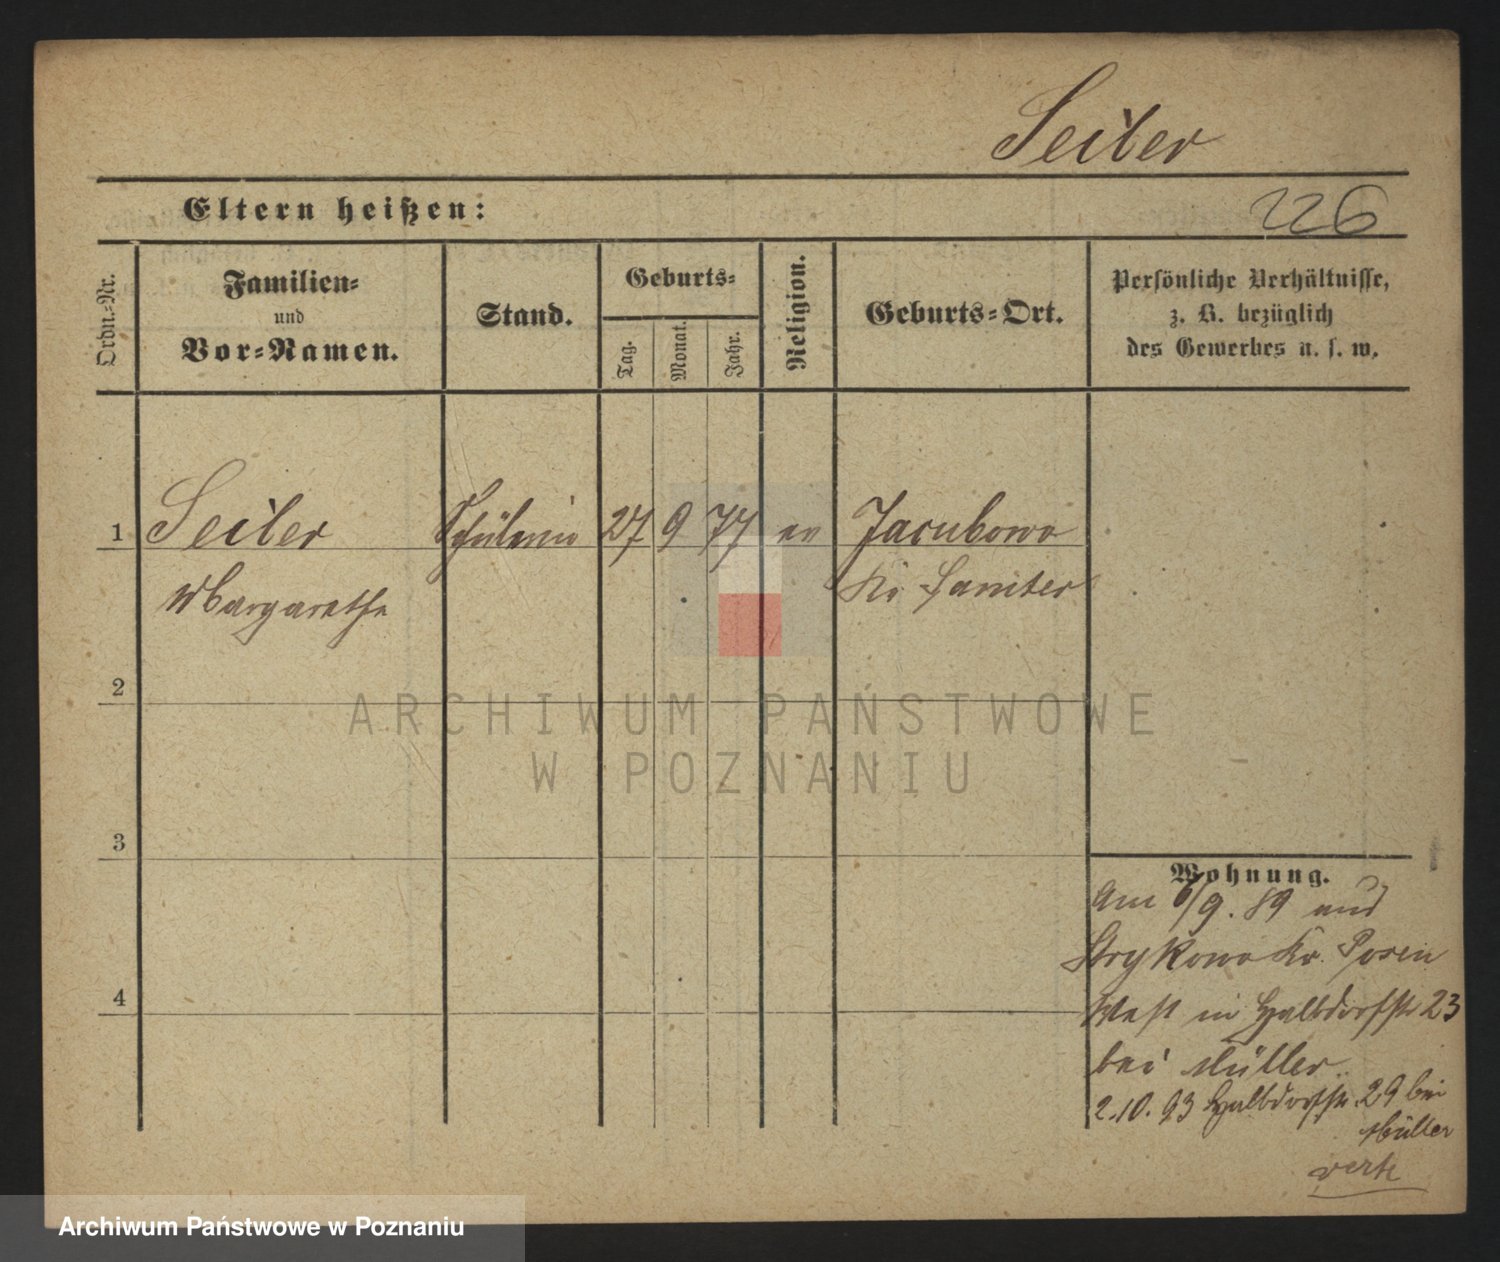 Seiler
Eltern heißen:
226
Ordn.-Nr.
Familien-
und
Vor-Namen.
Stand.
Geburts-
Tag.
Monat.
Jahr.
Religion.
Geburts-Ort.
Persönliche Verhältnisse,
z. B. bezüglich
des Gewerbes u. s. w.
1
Seiler
Schülerin
27
9
77
ev
Jacubowo
Margarethe
Kr Samter
2
3
4
Wohnung.
Am 6/9. 89 aus
Strykowo Kr. Posen
West in Halbdorfstr 23
bei Müller
2.10.93 Halbdorfstr. 29 bei
Müller
verte
ARCHIWUM PAŃSTWOWE
W POZNANIU
Archiwum Państwowe w Poznaniu